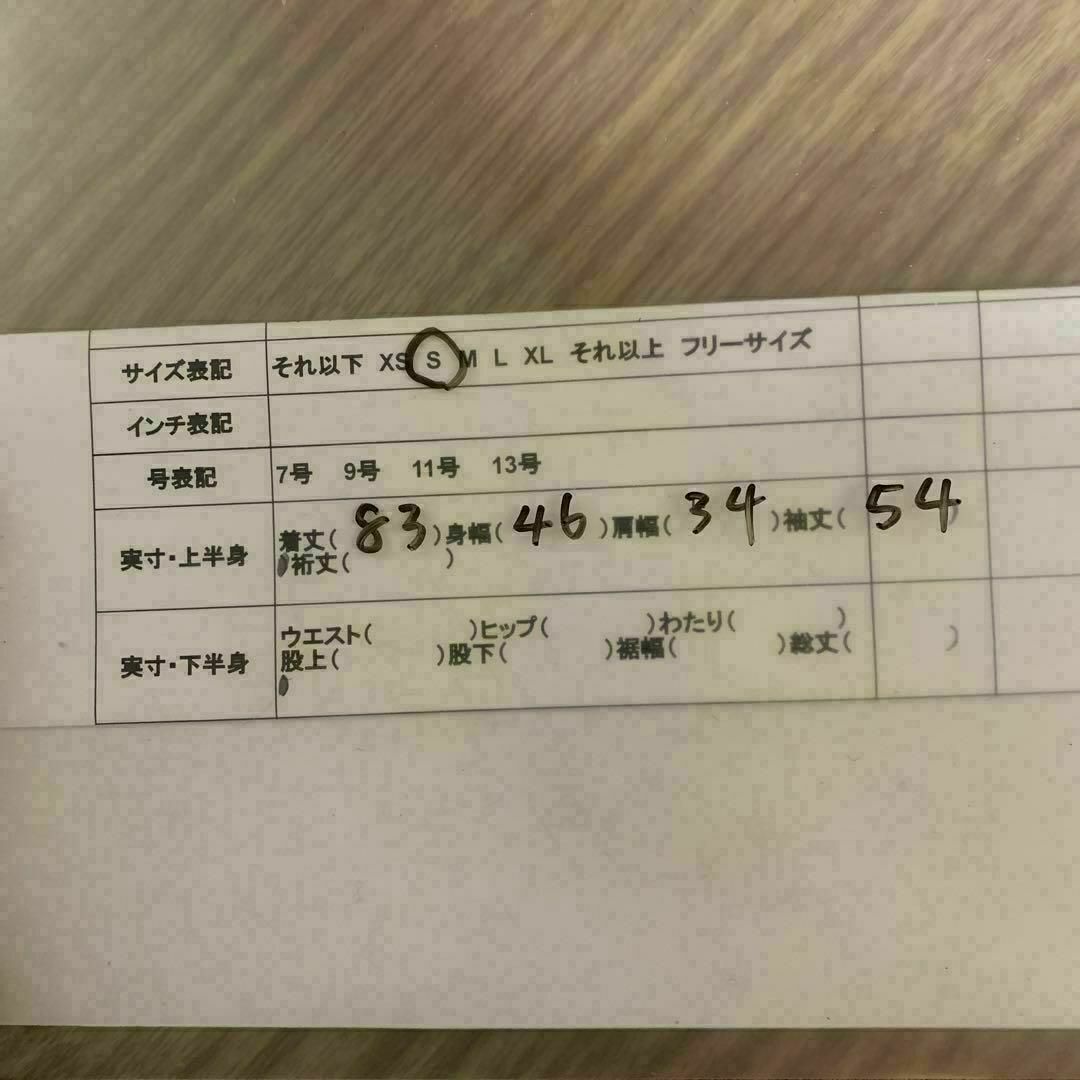 サイズ表記 それ以下 XS S M L XL それ以上 フリーサイズ
インチ表記
号表記 7号 9号 11号 13号
実寸・上半身 着丈( 83 )身幅( 46 )肩幅( 34 )袖丈( 54 )
裄丈( )
実寸・下半身 ウエスト( )ヒップ( )わたり( )
股上( )股下( )裾幅( )総丈( )